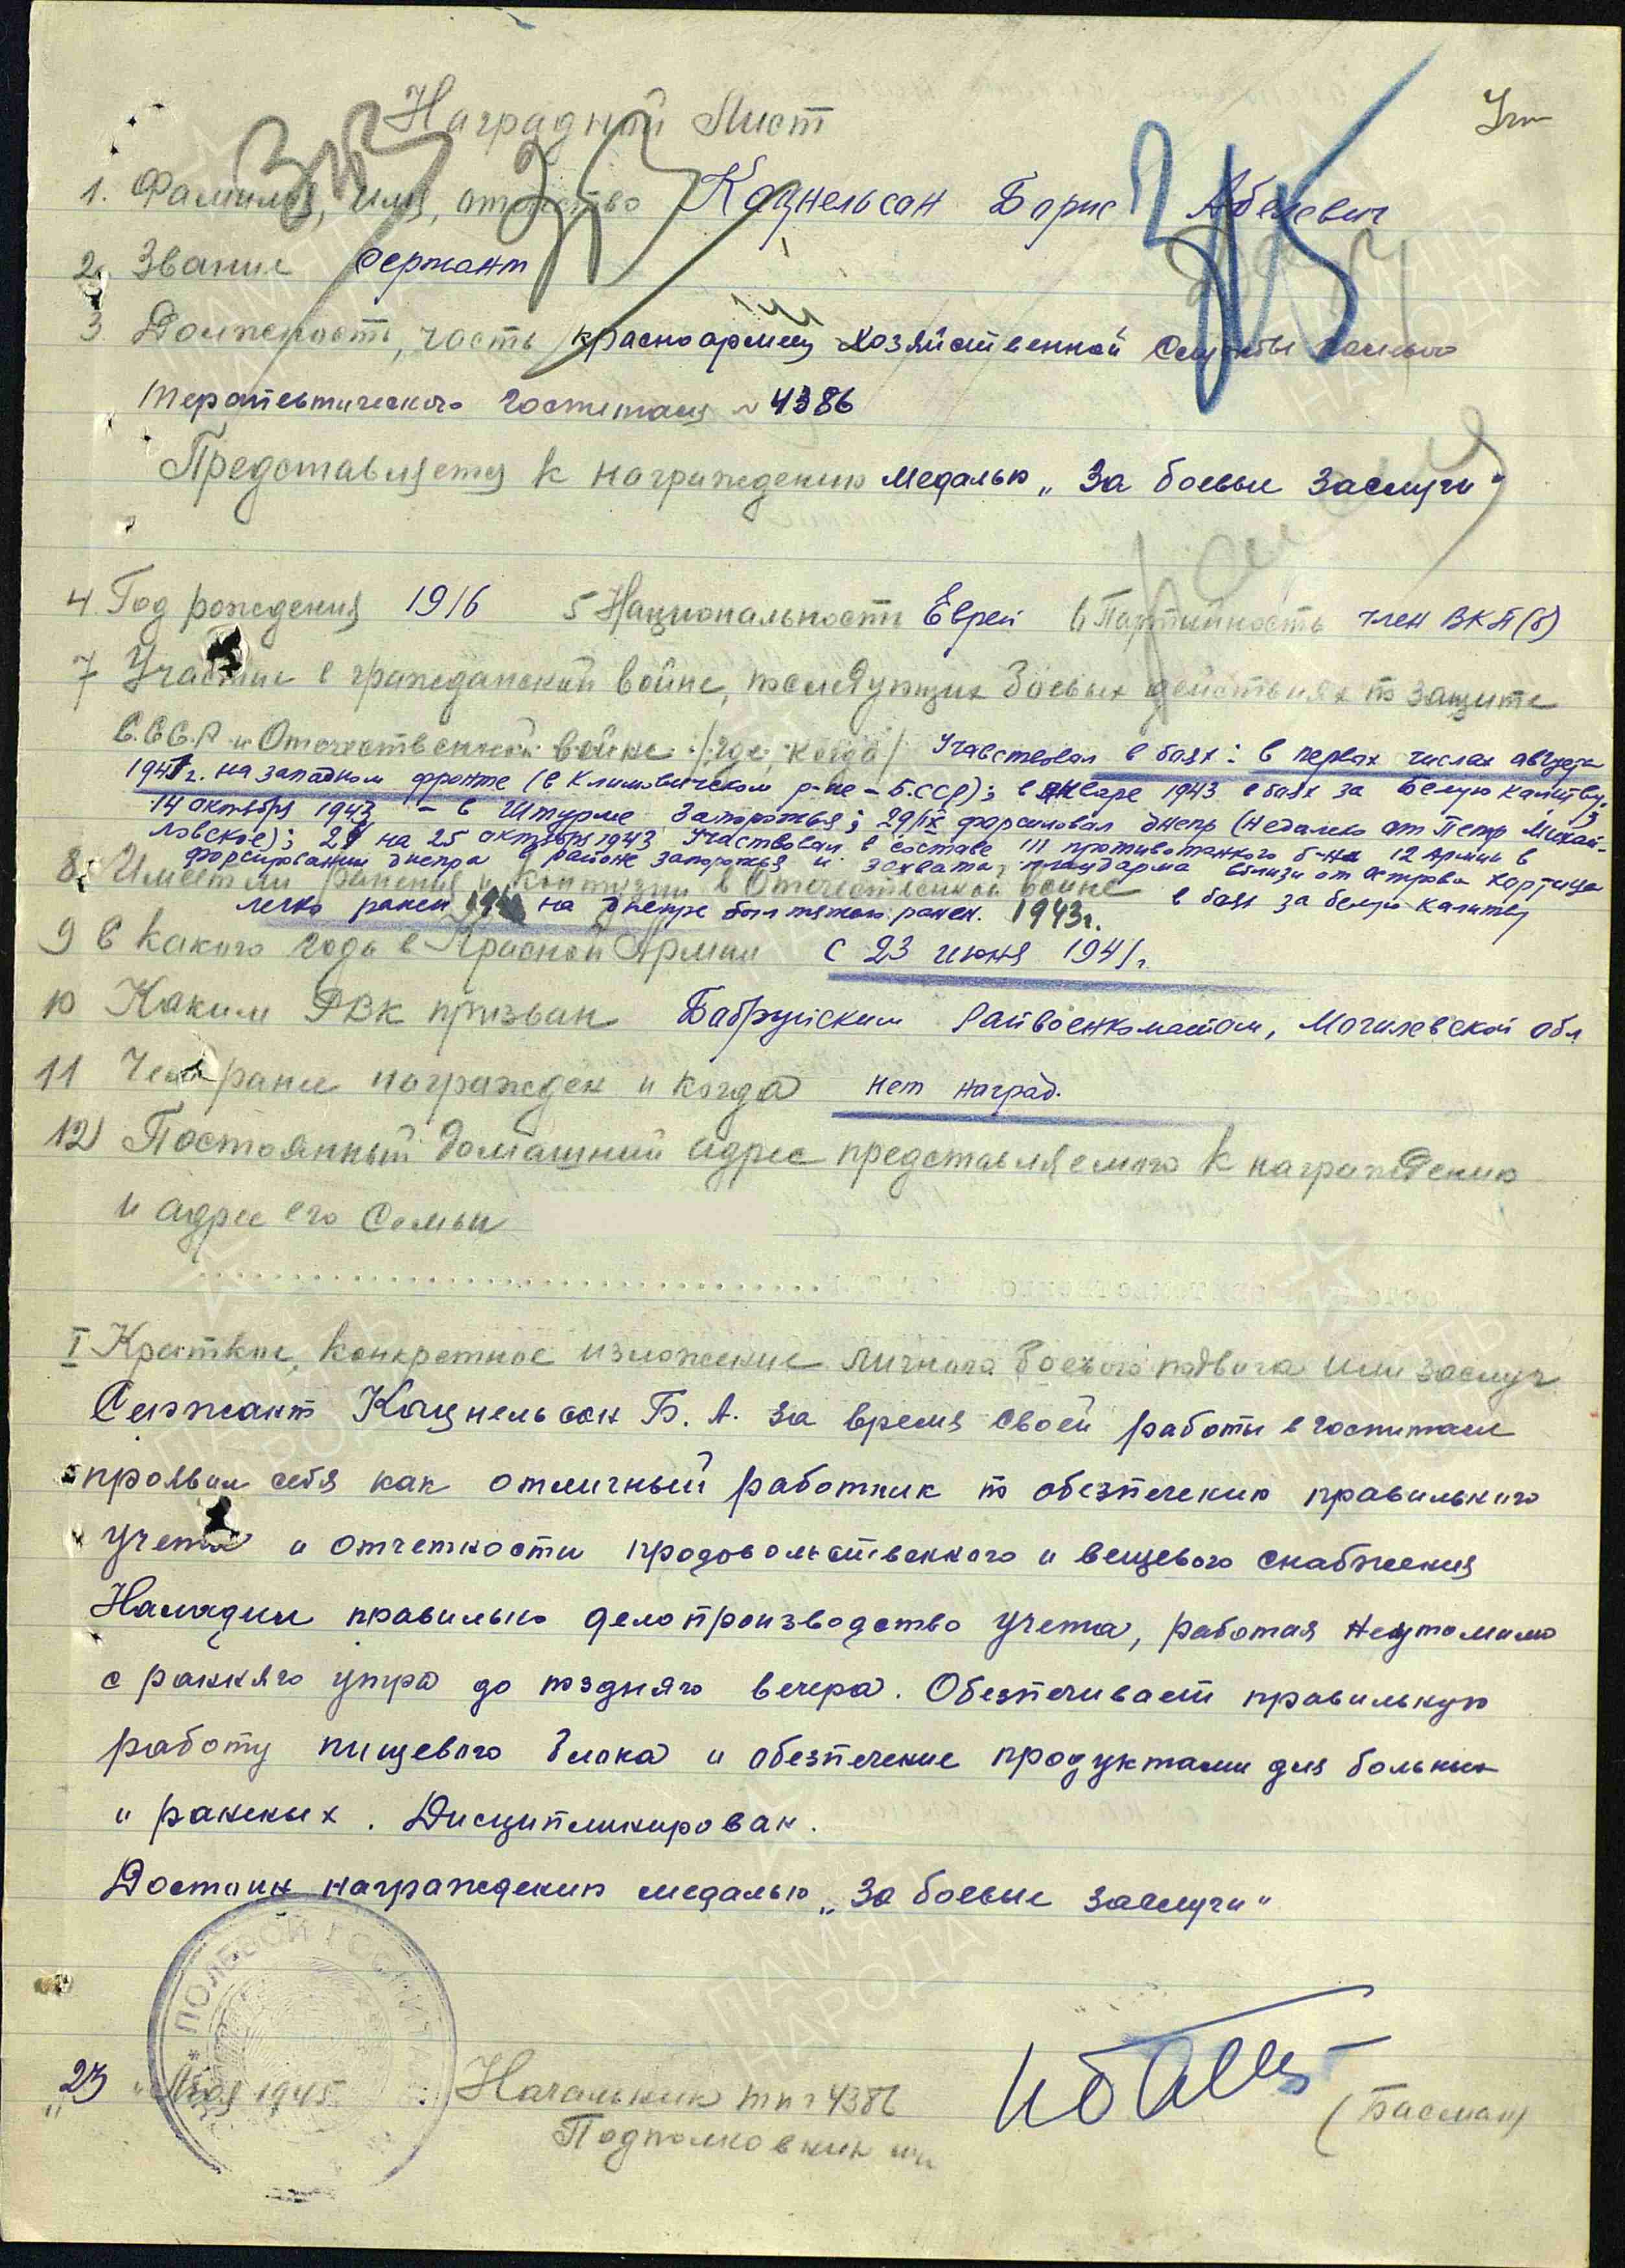 Наградной Лист
1. Фамилия, имя, отчество Кацнельсон Борис Абелевич
2. Звание Сержант
3. Должность, часть красноармеец хозяйственной службы полевого
терапевтического госпиталя № 4386
Представляется к награждению медалью „За боевые заслуги"
4. Год рождения 1916 5 Национальность Еврей 6 Партийность член ВКП(б)
7 Участие в гражданской войне, последующих боевых действиях по защите
С.С.С.Р и Отечественной войне /где, когда/ Участвовал в боях: в первых числах августа
1941г. на западном фронте (в Климовичском р-не – БССР); в январе 1943 в боях за Белую Калитву;
14 октября 1943 – в штурме Запорожья; 29/IX форсировал Днепр (недалеко от Петро Михай-
ловское); 24 на 25 октября 1943 Участвовал в составе III противотанкого б-на 12 Армии в
форсировании Днепра в районе Запорожья и захвата плацдарма вблизи от острова Хортица
8. Имеет ли ранения и контузии в Отечественной войне в боях за белую калитву
легко ранен на Днепре был тяжело ранен. 1943г.
9 С какого года в Красной Армии с 23 июня 1941г.
10 Каким РВК призван Бабруйским Райвоенкоматом, Могилевской обл
11 Чем ранее награжден и когда нет наград.
12) Постоянный домашний адрес представляемого к награждению
и адрес его семьи
I Краткое, конкретное изложение личного боевого подвига или заслуг
Сержант Кацнельсон Б. А. за время своей работы в госпитале
проявил себя как отличный работник по обезпечению правильного
учета и отчетности продовольственного и вещевого снабжения
Наладил правильно делопроизводство учета, работая неутомимо
с раннего утра до позднего вечера. Обезпечивает правильную
работу пищевого блока и обезпечение продуктами для больных
и раненых. Дисциплинирован.
Достоин награждения медалью „За боевые заслуги"
ПОЛЕВОЙ ГОСПИТАЛЬ
„23" Мая 1945 Начальник тпг 4386
Подполковник м/с (Басман)
ПАМЯТЬ НАРОДА